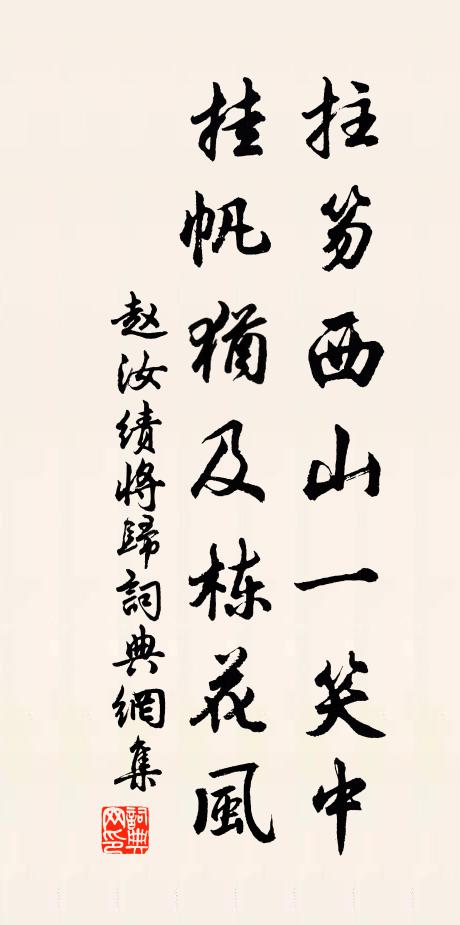 拄笏西山一笑中
挂帆猶及楝花風
赵汝績將歸詞典網集
詞典网印